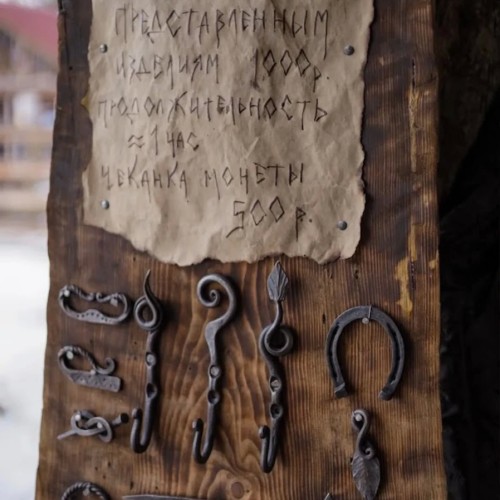 ПРЕДСТАВЛЕННЫМ
ИЗДЕЛИЯМ 1000р.
ПРОДОЛЖИТЕЛЬНОСТЬ
≈ 1 ЧАС
ЧЕКАНКА МОНЕТЫ
500 р.